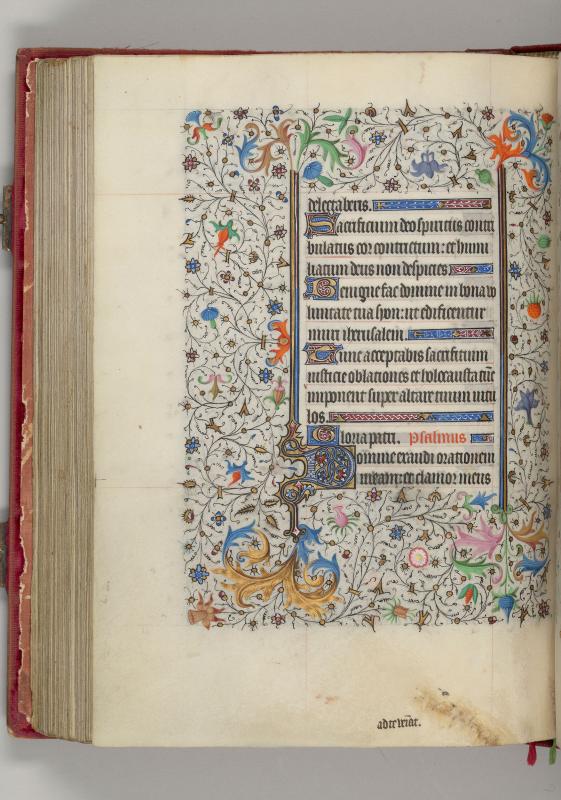 delectaberis.
Sacrificium deo spiritus contri
bulatus cor contritum: et humi
liatum deus non despicies
Benigne fac domine in bona vo
luntate tua syon: ut edificentur
muri iherusalem.
Tunc acceptabis sacrificium
iusticie oblationes et holocausta tūc
imponent super altare tuum vitu
los.
Gloria patri. Psalmus
Domine exaudi orationem
meam: et clamor meus
ad te veniat.